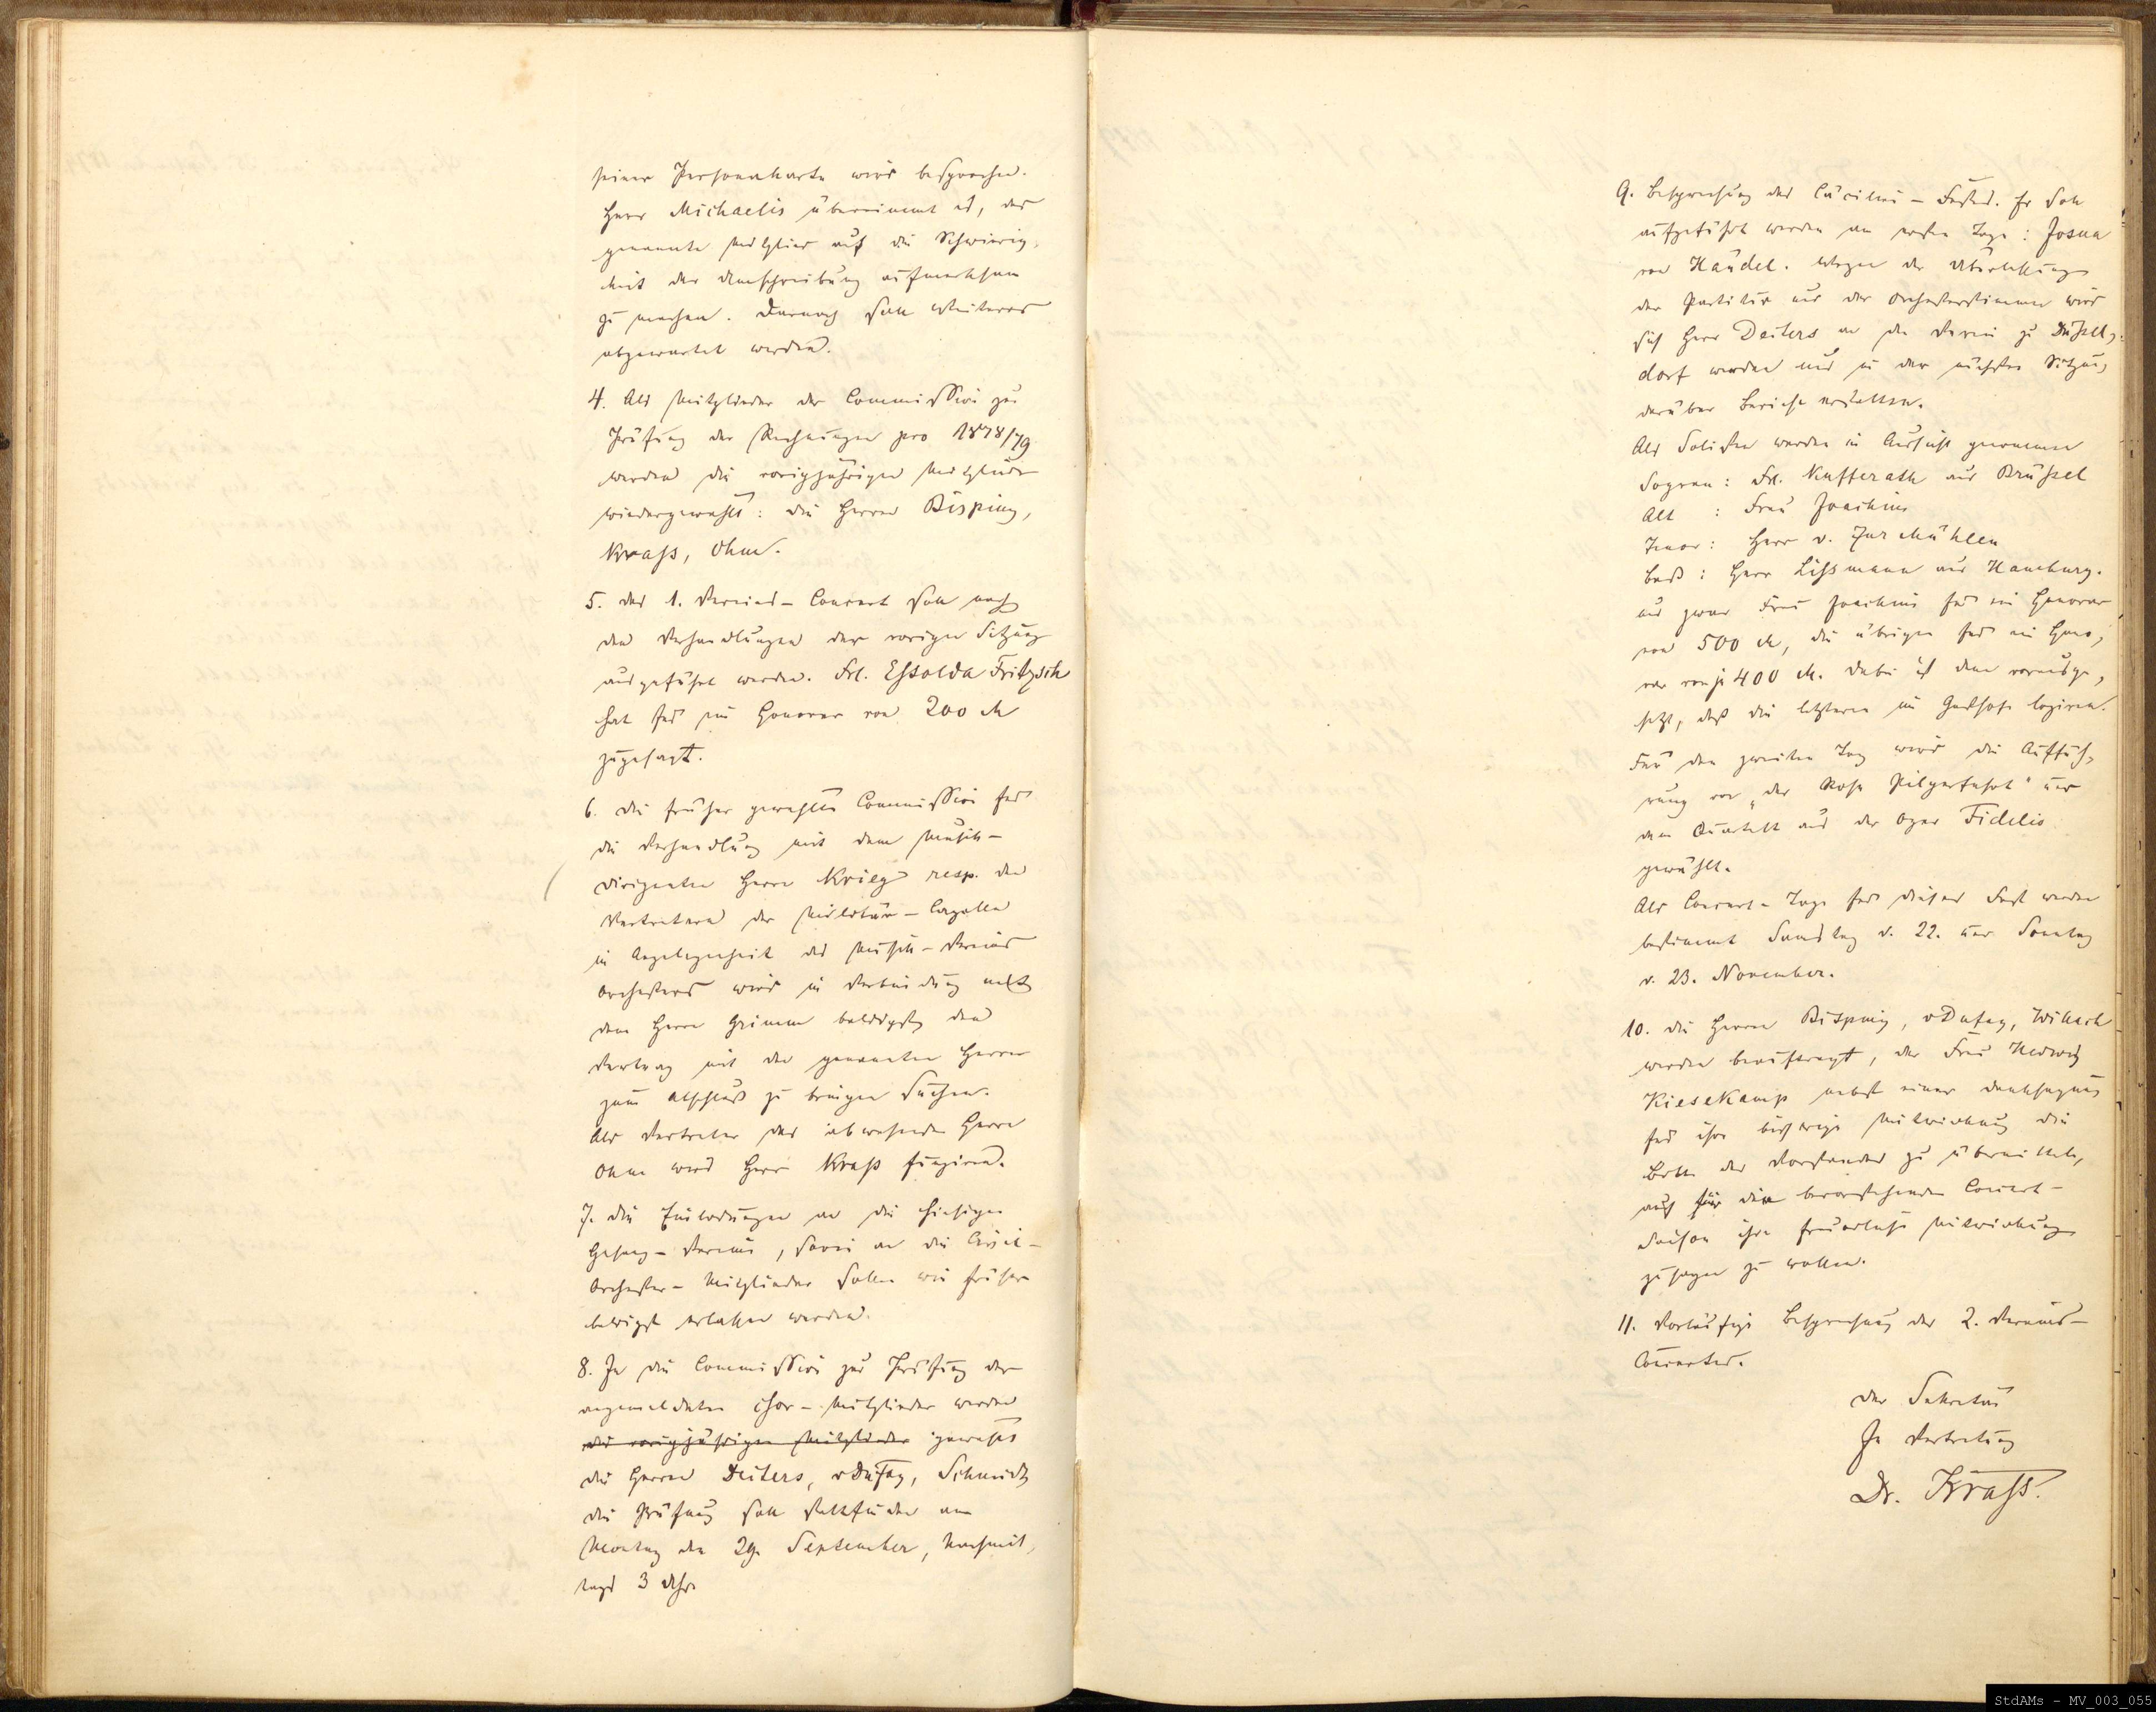 seiner Personalkarte wird besprochen.
Herr Michaelis übernimmt es, das
genannte Mitglied auf die Schwierig-
keit der Umschreibung aufmerksam
zu machen. Darnach soll Weiteres
abgewartet werden.
4. Als Mitglieder der Commission zur
Prüfung der Rechnungen pro 1878/79
werden die vorigjährigen Mitglieder
wiedergewählt: die Herren Bisping,
Krass, Ohm.
5. Das 1. Vereins-Concert soll nach
den Verhandlungen der vorigen Sitzung
ausgeführt werden. Frl. Fritzsch
hat für ein Honorar von 200 M
zugesagt.
6. Die früher gewählte Commission für
die Verhandlung mit dem Musik-
dirigenten Herrn Krieg resp. den
Vertretern der Militär-Capelle
in Angelegenheit des Musik-Vereins
Orchesters wird in Verbindung mit
dem Herrn Grimm baldigst den
Vertrag mit den genannten Herren
zum Abschluß zu bringen suchen.
Als Vertreter des abwesenden Herrn
Ohm wird Herr Krass fungiren.
7. Die Einladungen an die hiesigen
Gesang-Vereine, sowie an die Civil-
Orchester-Mitglieder sollen wie früher
baldigst erlassen werden.
8. In die Commission zur Prüfung der
angemeldeten Chor-Mitglieder werden
die vorigjährigen Mitglieder gewählt
die Herren Deiters, v Dufay, Schmidt
die Prüfung soll stattfinden am
Montag den 29. September, Nachmit-
tags 3 Uhr.
9. Besprechung des Cäcilien-Festes. Es soll
aufgeführt werden am ersten Tage: Josua
von Händel. Wegen der Überlassung
der Partitur und der Orchesterstimmen wird
sich Herr Deiters an den Verein zu Düssel-
dorf wenden und in der nächsten Sitzung
darüber Bericht erstatten.
Als Solisten werden in Aussicht genommen
Sopran: Frl. Kufferath aus Brüssel
Alt : Frau Joachim
Tenor: Herr v. Zur Mühlen
Baß: Herr Lissmann aus Hamburg.
und zwar Frau Joachim für ein Honorar
von 500 M, die übrigen für ein Hono-
rar von je 400 M. Dabei ist dann vorausge-
setzt, daß die letzteren im Gasthofe logiren.
Für den zweiten Tag wird die Auffüh-
rung von „der Rose Pilgerfahrt" und
dem Quartett aus der Oper Fidelio
gewählt.
Als Concert-Tage für dieses Fest werden
bestimmt Samstag d. 22. und Sonntag
d. 23. November.
10. Die Herren Bisping, v Dufay,
werden beauftragt, der Frau Hedwig
Kiesekamp nebst einer Danksagung
für ihre bisherige Mitwirkung die
Bitte des Vorstandes zu übermitteln,
auch für die bevorstehende Concert-
Saison ihre freundliche Mitwirkung
zusagen zu wollen.
11. Vorläufige Besprechung des 2. Vereins-
Concertes.
Der Sekretär
In Vertretung
Dr. Krass.
StdAMs - MV_003_055